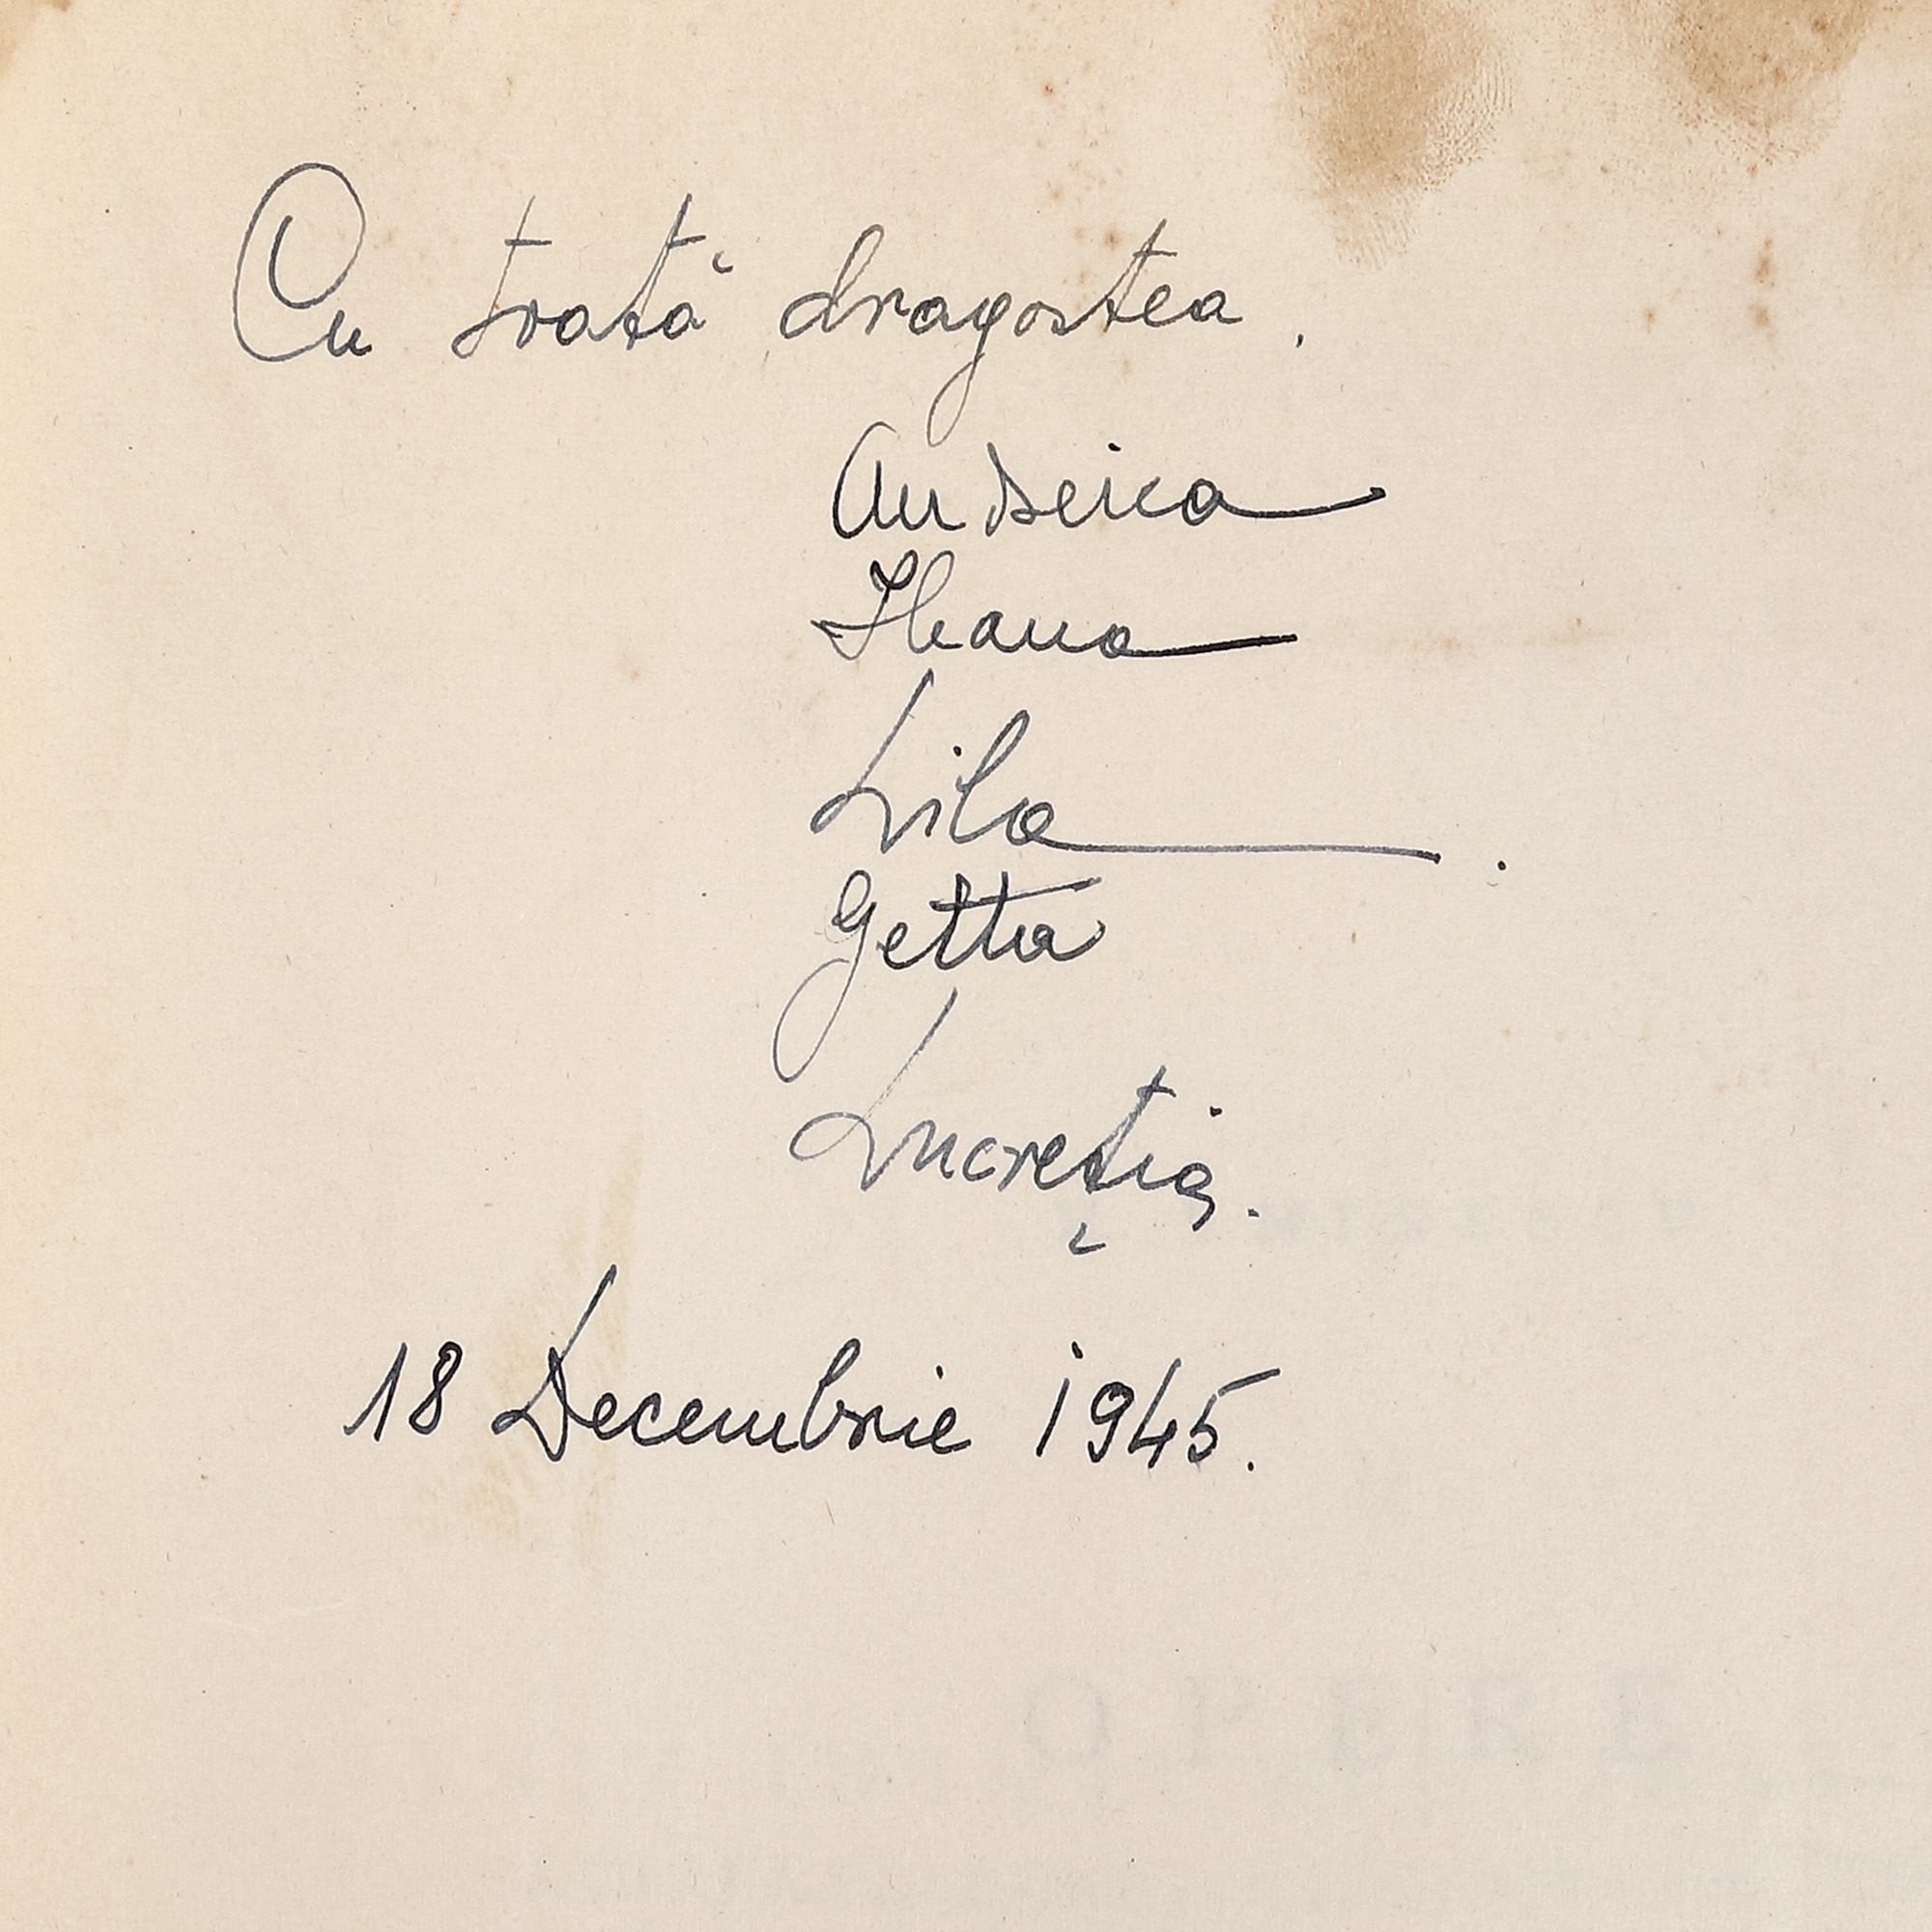 Cu toată dragostea.
Andreica
Ileana
Lila.
Getta
Lucreția.
18 Decembrie 1945.
OPERE